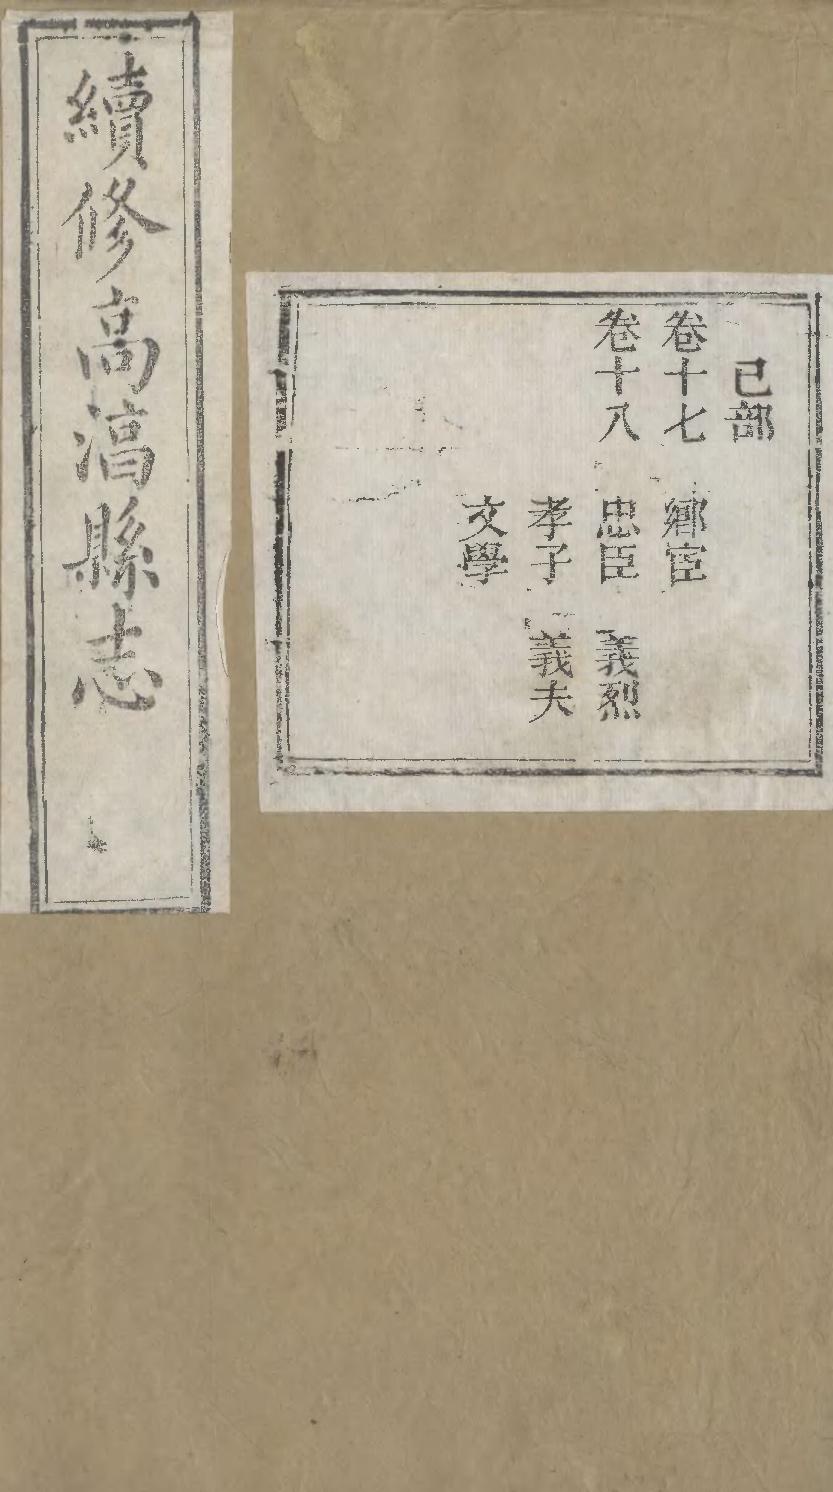 己部
卷十七 鄉宦
卷十八 忠臣 義烈
孝子 義夫
文學
續修高淯縣志